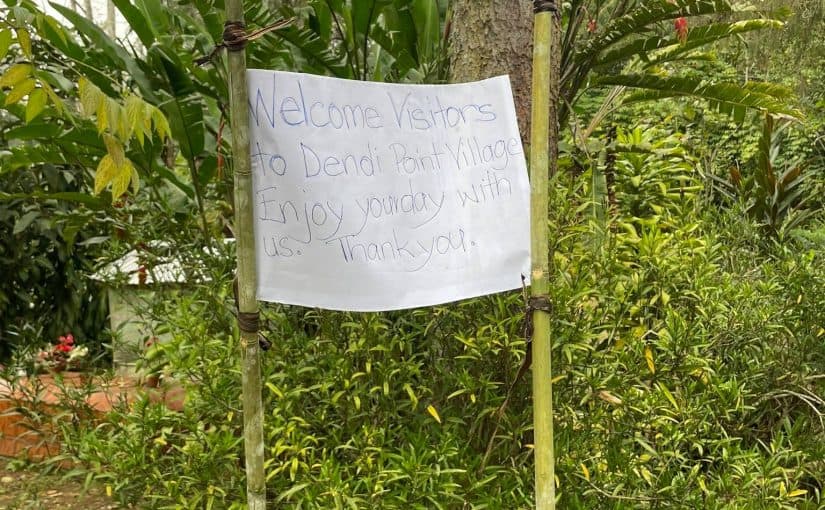 Welcome Visitors
to Dendi Point Village
Enjoy yourday with
us. Thankyou.